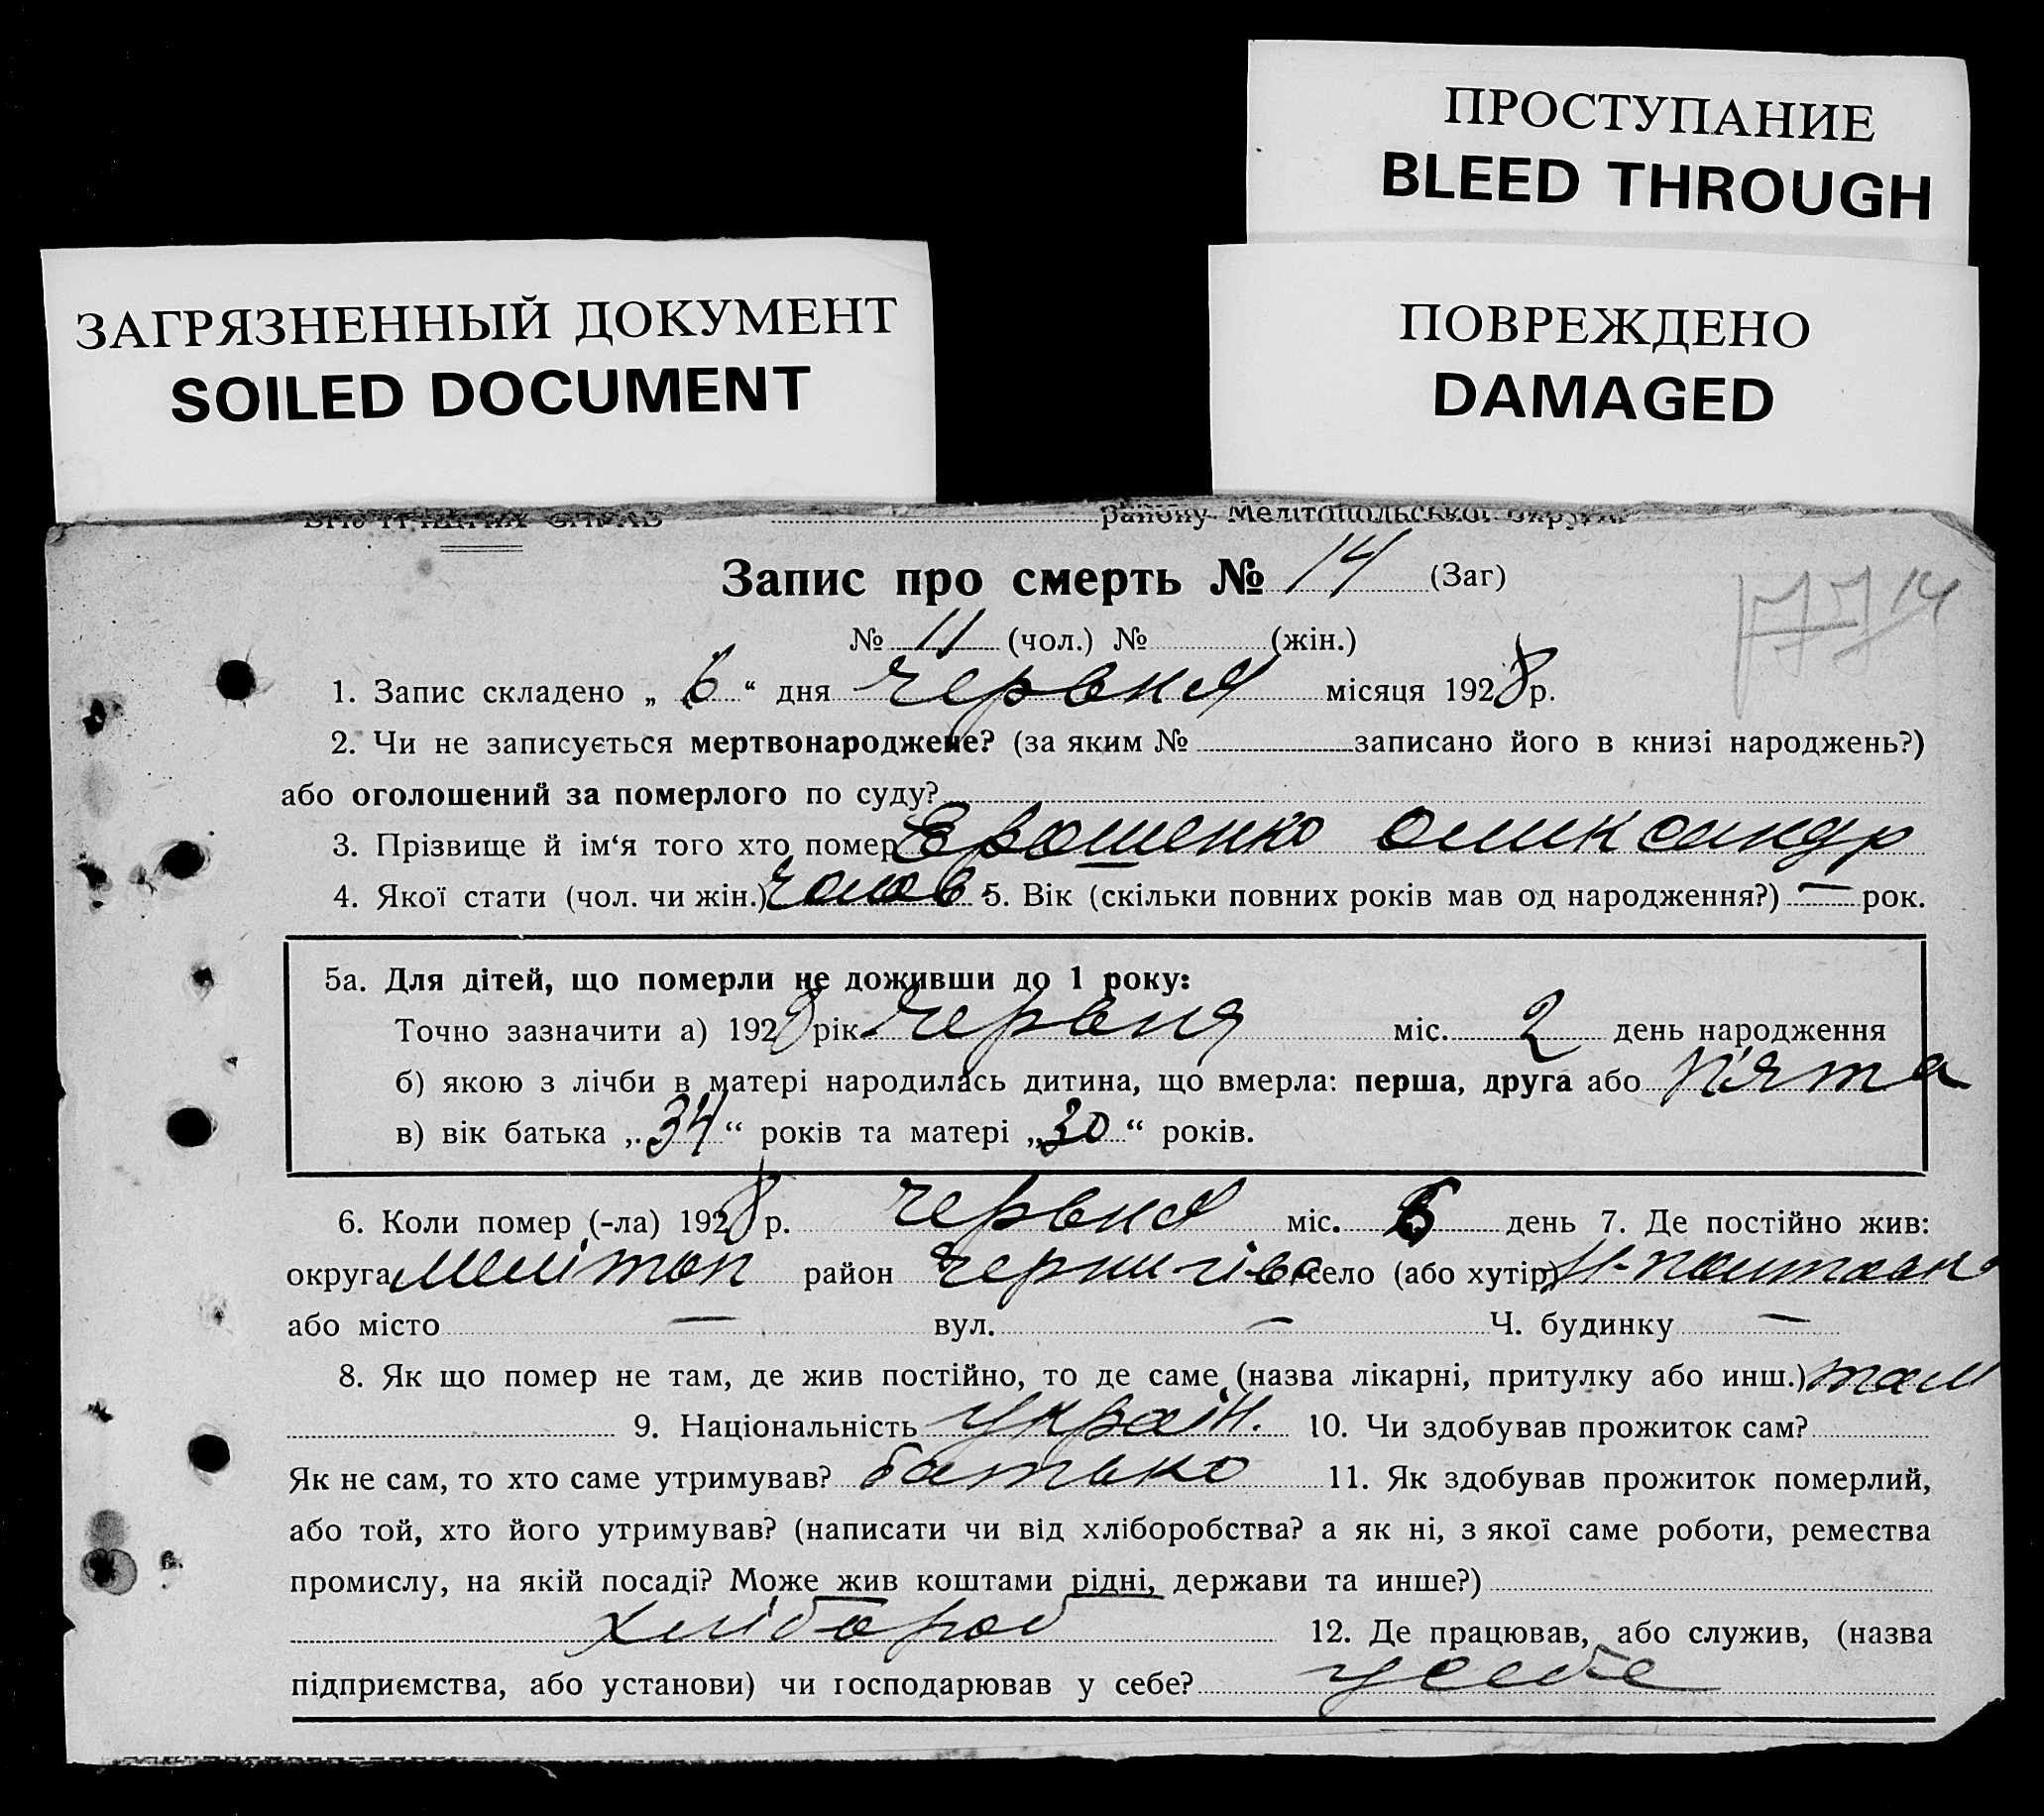 ПРОСТУПАНИЕ
BLEED THROUGH
ЗАГРЯЗНЕННЫЙ ДОКУМЕНТ
SOILED DOCUMENT
ПОВРЕЖДЕНО
DAMAGED
району Мелітопольської округи
Запис про смерть № 14 (Заг)
14
№ 11 (чол.) № (жін.)
1. Запис складено „ 6 “ дня червня місяця 1928 р.
2. Чи не записується мертвонароджене? (за яким № записано його в книзі народжень?)
або оголошений за померлого по суду?
3. Прізвище й ім‘я того хто помер Єрошенко Олександр
4. Якої стати (чол. чи жін.) чолов. 5. Вік (скільки повних років мав од народження?) — рок.
5а. Для дітей, що померли не доживши до 1 року:
Точно зазначити а) 1928 рік червня міс. 2 день народження
б) якою з лічби в матері народилась дитина, що вмерла: перша, друга або п'ята
в) вік батька „ 34 “ років та матері „ 30 “ років.
6. Коли помер (-ла) 1928 р. червня міс. день 7. Де постійно жив:
округа Мелітоп район Чернигівс село (або хутір) Н-Полтавк
або місто — вул. — Ч. будинку —
8. Як що помер не там, де жив постійно, то де саме (назва лікарні, притулку або инш.) там
9. Національність україн. 10. Чи здобував прожиток сам?
Як не сам, то хто саме утримував? батько 11. Як здобував прожиток померлий,
або той, хто його утримував? (написати чи від хліборобства? а як ні, з якої саме роботи, ремества
промислу, на якій посаді? Може жив коштами рідні, держави та инше?)
хлібороб 12. Де працював, або служив, (назва
підприємства, або установи) чи господарював у себе? у себе